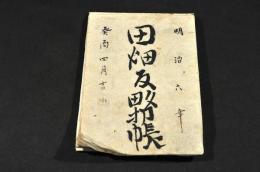 明治六年
田畑反畧帳
癸酉四月吉日